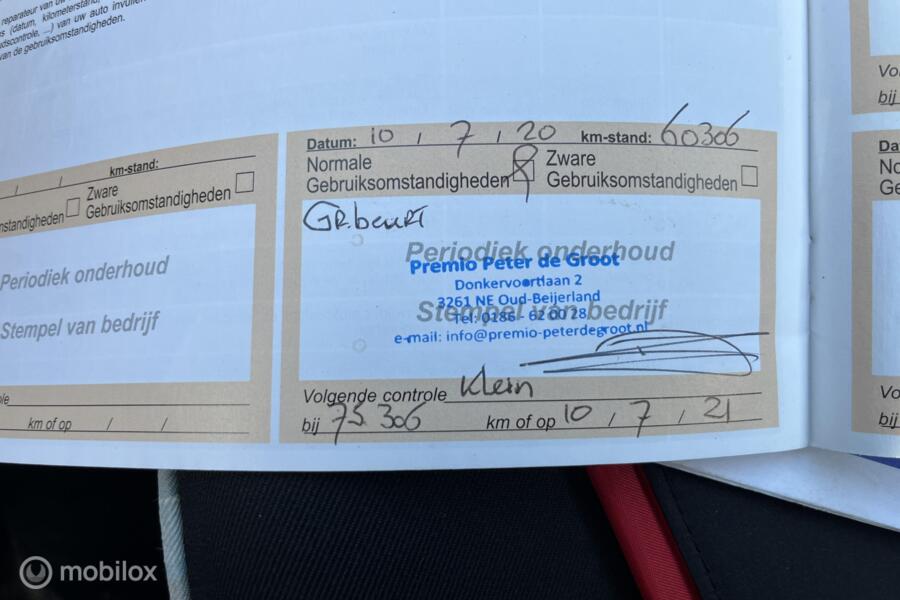 reparateur van uw
(datum, kilometerstand,
van uw auto invullen
van de gebruiksomstandigheden.
km-stand:
/ /
Zware
Gebruiksomstandigheden
Periodiek onderhoud
Stempel van bedrijf
km of op / /
Datum: 10 / 7 / 20 km-stand: 60306
Normale
Gebruiksomstandigheden
Zware
Gebruiksomstandigheden
GR.beurt
Periodiek onderhoud
Premio Peter de Groot
Donkervoortlaan 2
3261 NE Oud-Beijerland
Stempel van bedrijf
Tel: 0186 - 62 00 28
e-mail: info@premio-peterdegroot.nl
Volgende controle Klein
bij 75 306 km of op 10 / 7 / 21
bij
bij
mobilox